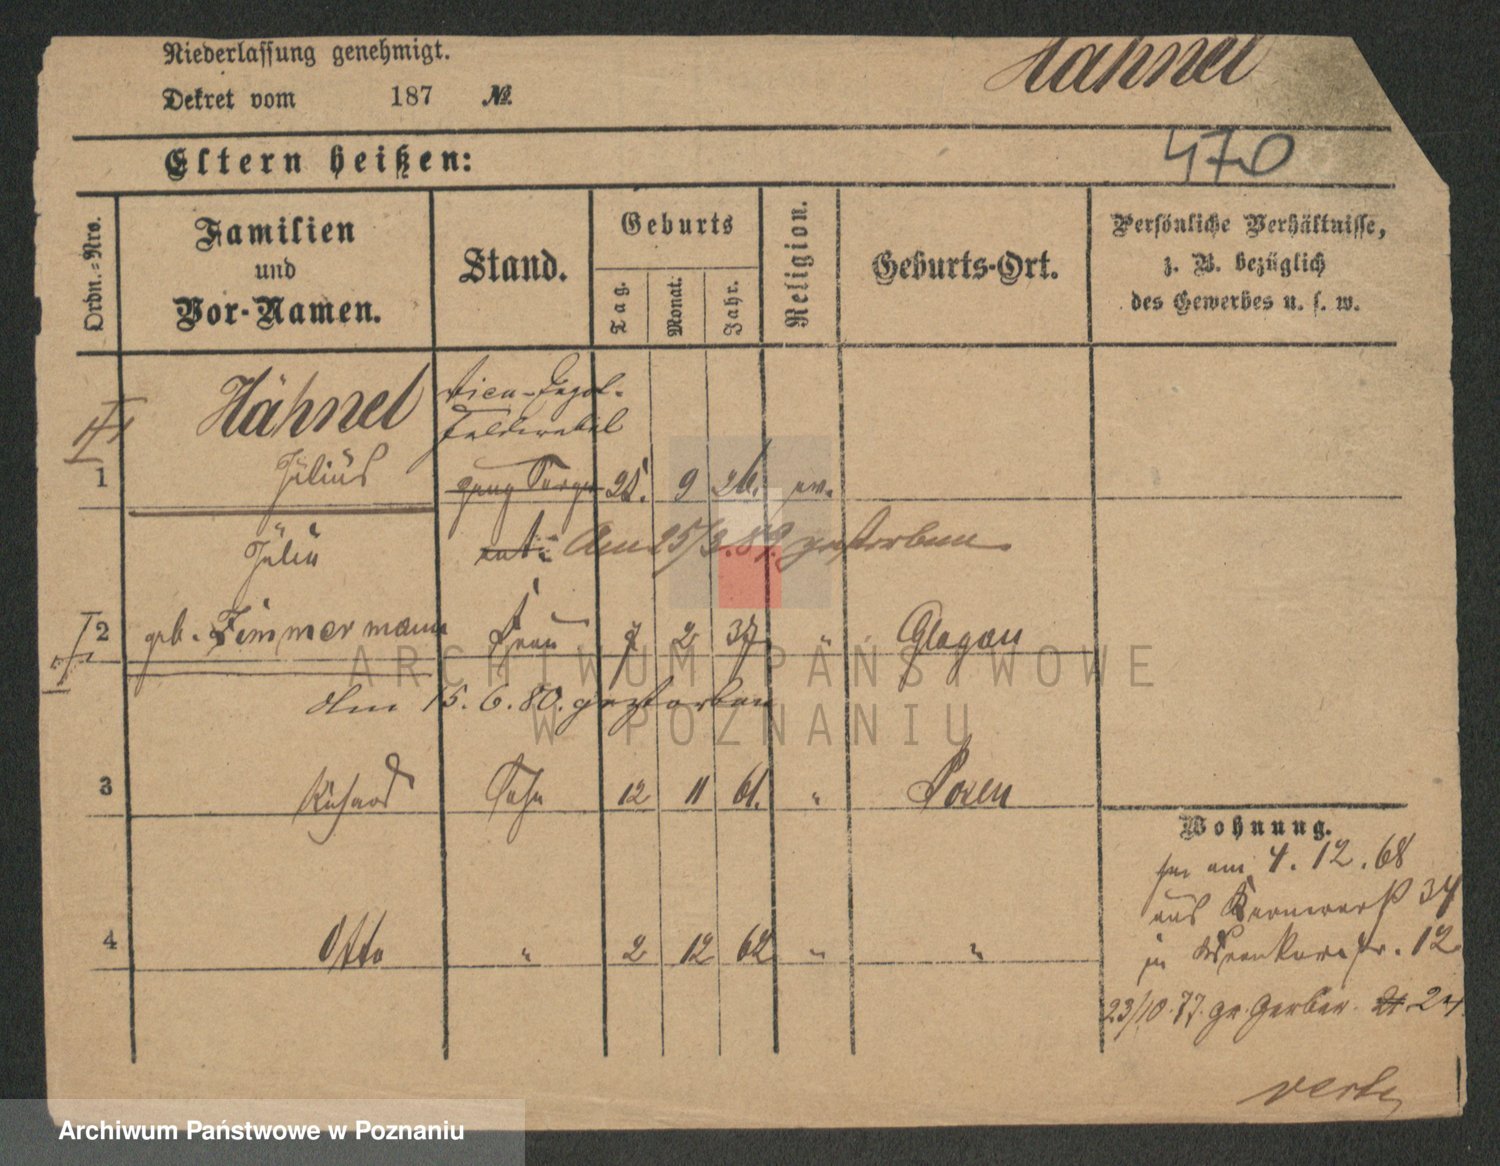 Niederlassung genehmigt.
Hähnel
Dekret vom 187 №.
470
Eltern heißen:
Ordn.=Nro.
Familien
und
Vor-Namen.
Stand.
Geburts
Tag.
Monat.
Jahr.
Religion.
Geburts-Ort.
Persönliche Verhältnisse,
z. B. bezüglich
des Gewerbes u. s. w.
Hähnel
Feldwebel
1 Julius 9 26. ev.
Am 25/3. 89. gestorben
2 geb. Zimmermann Frau 7 2 37 " Glogau
Am 15. 6. 80. gestorben
3 Richard Sohn 12 11 61. " Posen
4 Otto " 2 12 62 " "
Wohnung.
am 4. 12. 68
aus Kernwerk 34
in 12
23/10. 77. gr. Gerber. 21 24
verte
ARCHIWUM PAŃSTWOWE
W POZNANIU
Archiwum Państwowe w Poznaniu